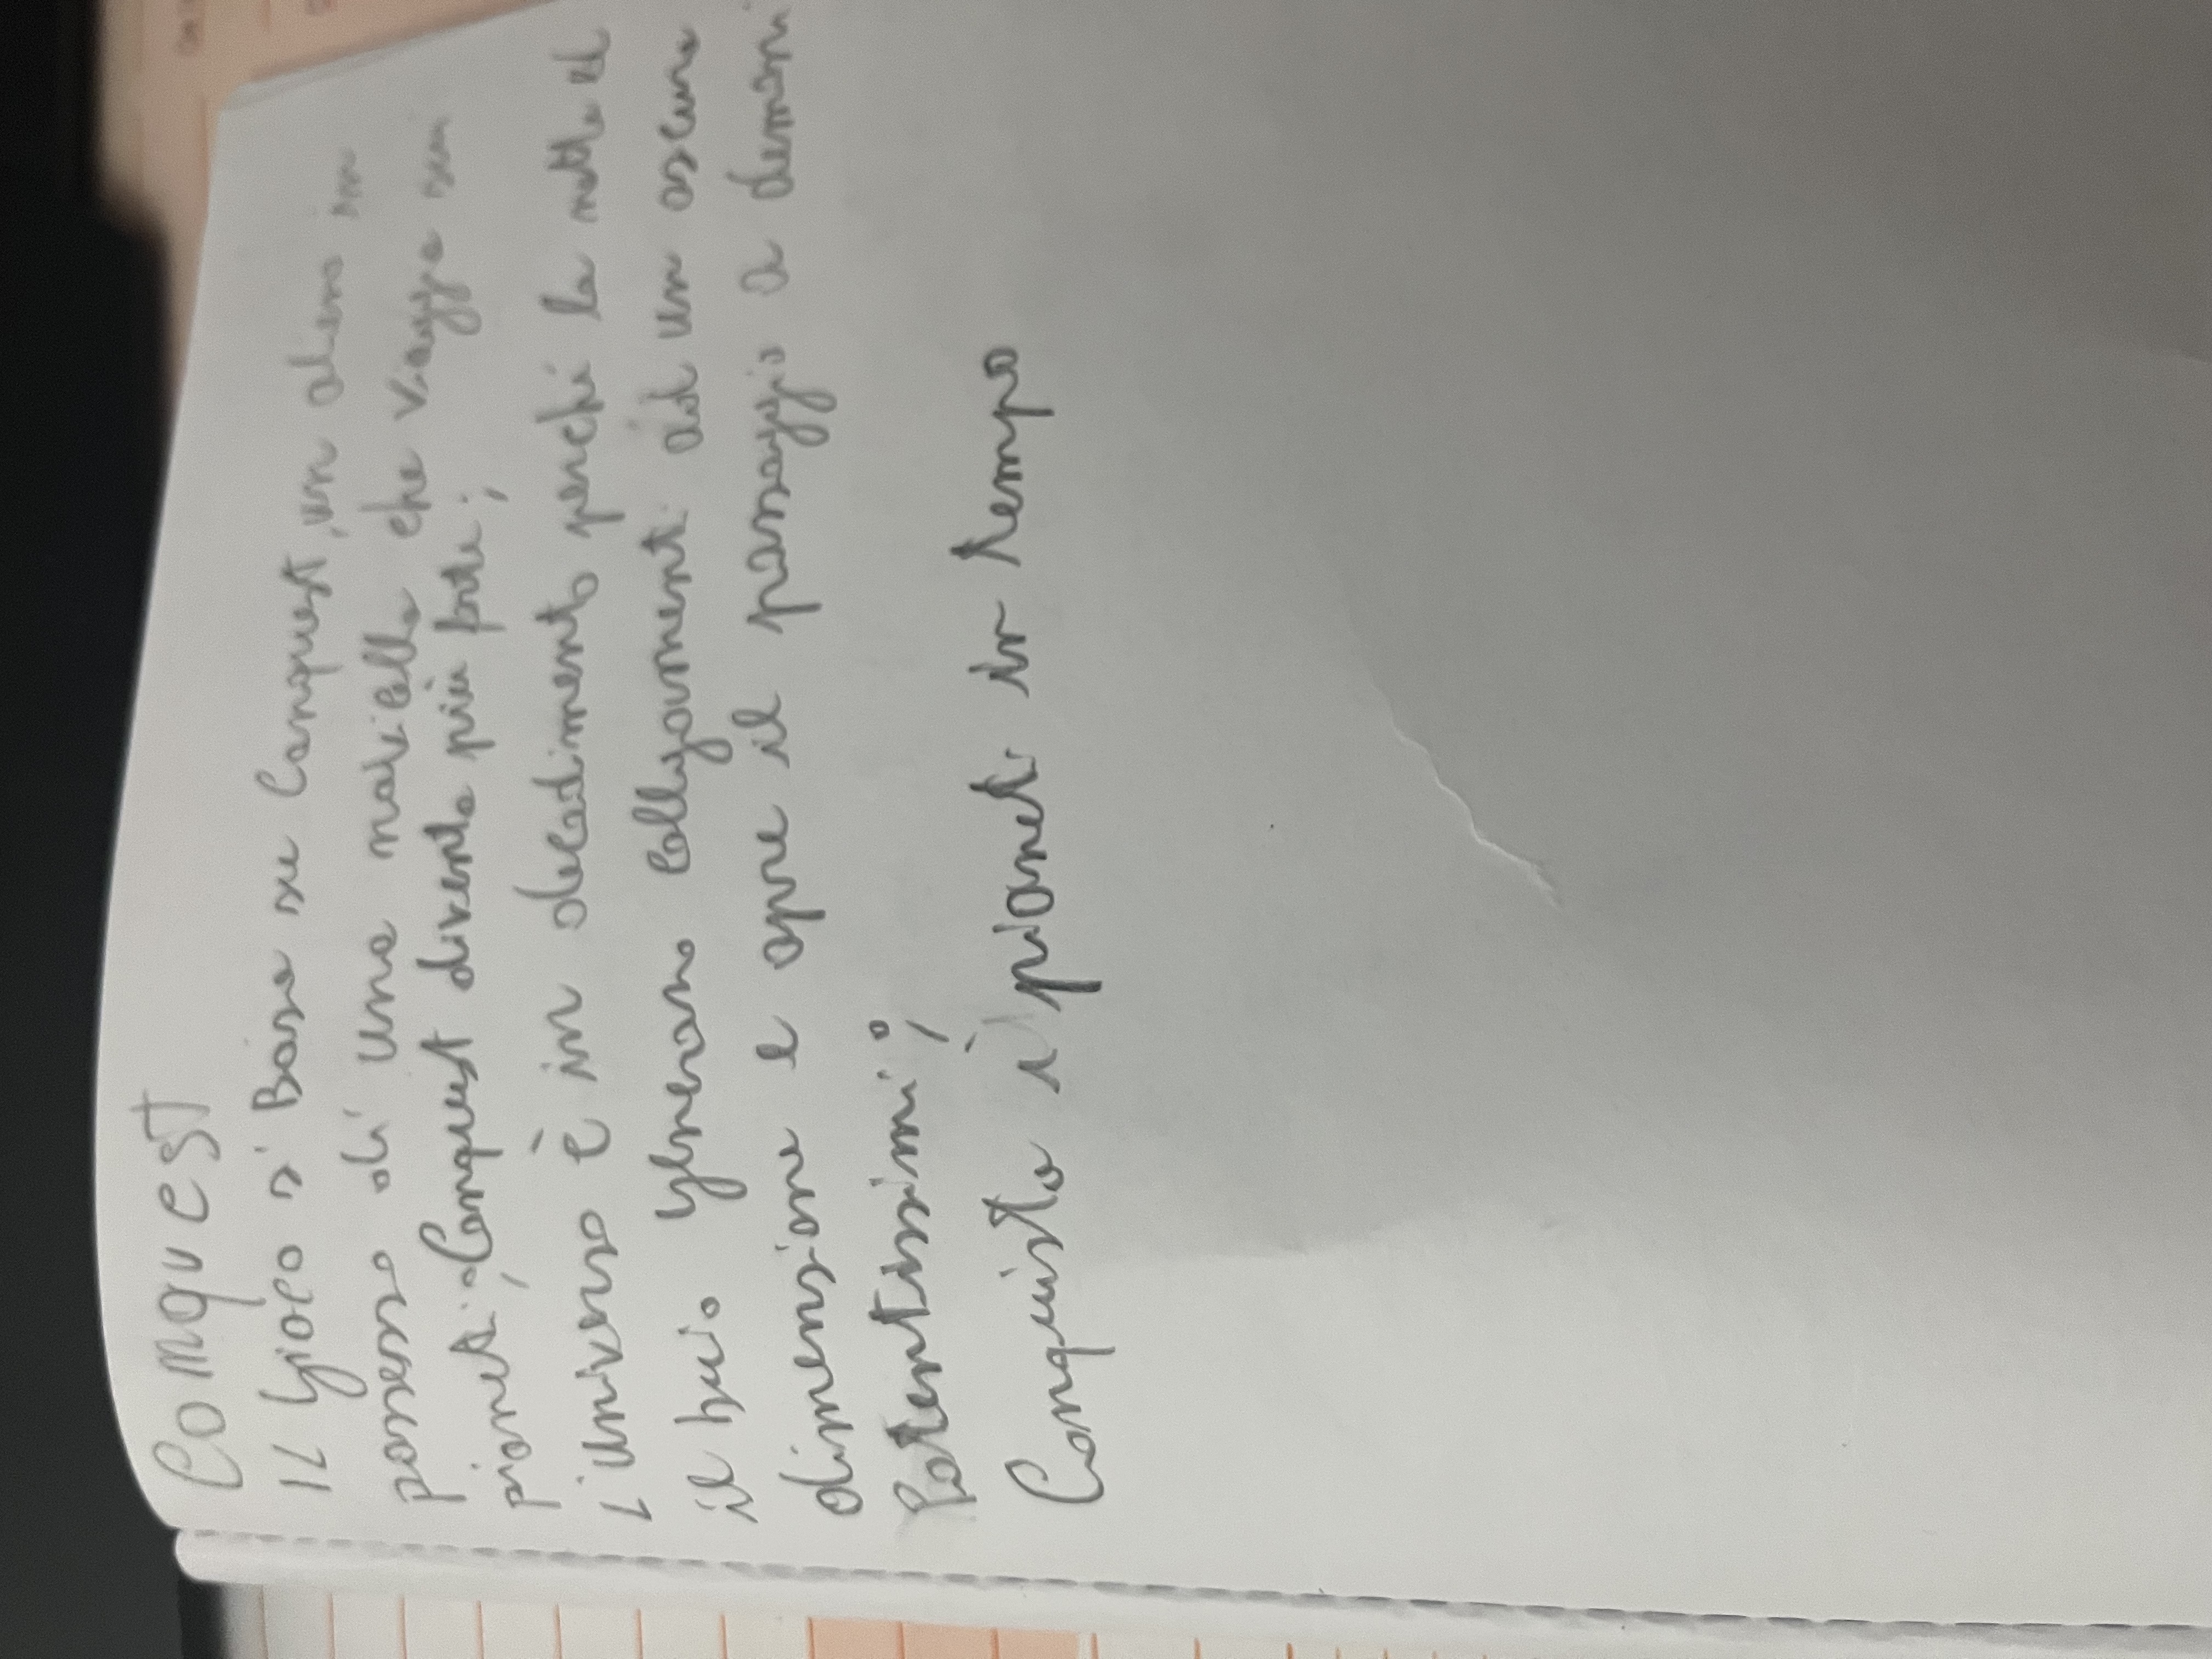 Comquest
Il Gioco si Basa su Conquest, un alieno in
possesso di una navicella che viaggia sui
pianeti; Conquest diventa più forte;
L'universo è in decadimento perché la notte ed
il buio generano collegamenti ad un oscura
dimensione e apre il passaggio a demoni
Potentissimi;
Conquista i pianeti in tempo